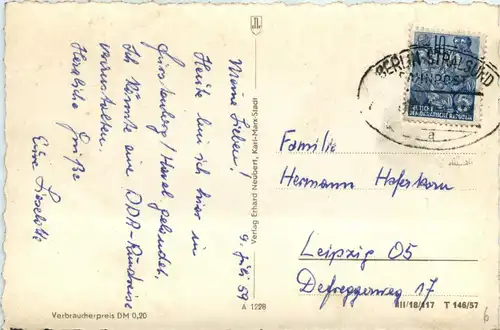 9. Juli 59
Meine Lieben!
Heute bin ich hier in
Fürstenberg/Havel gelandet.
Ich könnte eine DDR-Rundreise
veranstalten.
Herzliche Grüße
Eure Liselott
Verbraucherpreis DM 0,20
A 1228
Verlag Erhard Neubert, Karl-Marx-Stadt
10
BERLIN-STRALSUND
BAHNPOST
a
DEMOKRATISCHE REPUBLIK
Familie
Hermann Haferkorn
Leipzig O5
Defreggerweg 17
III/18/117 T 146/57